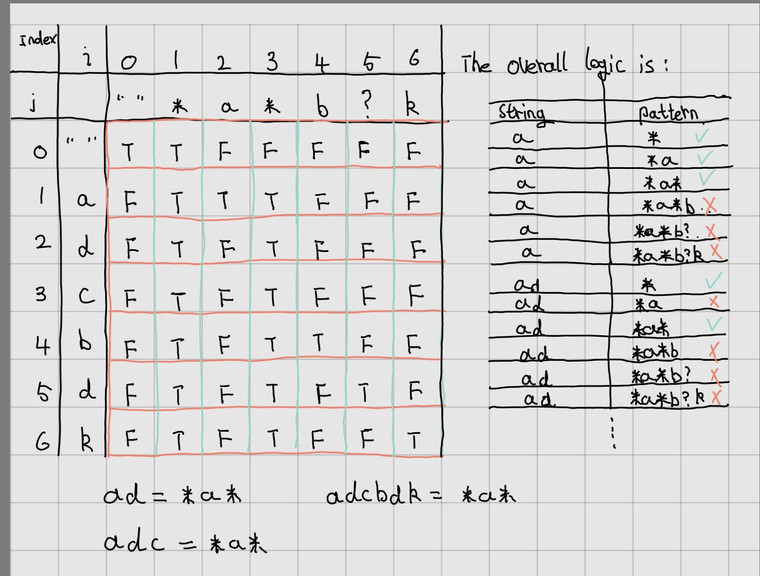 Index i 0 1 2 3 4 5 6
j " " * a * b ? k
0 " " T T F F F F F
1 a F T T T F F F
2 d F T F T F F F
3 c F T F T F F F
4 b F T F T T F F
5 d F T F T F T F
6 k F T F T F F T
ad = *a* adcbdk = *a*
adc = *a*
The overall logic is :
String pattern
a * ✓
a *a ✓
a *a* ✓
a *a*b. X
a *a*b?. X
a *a*b?k X
ad * ✓
ad *a X
ad *a* ✓
ad *a*b X
ad *a*b? X
ad *a*b?k X